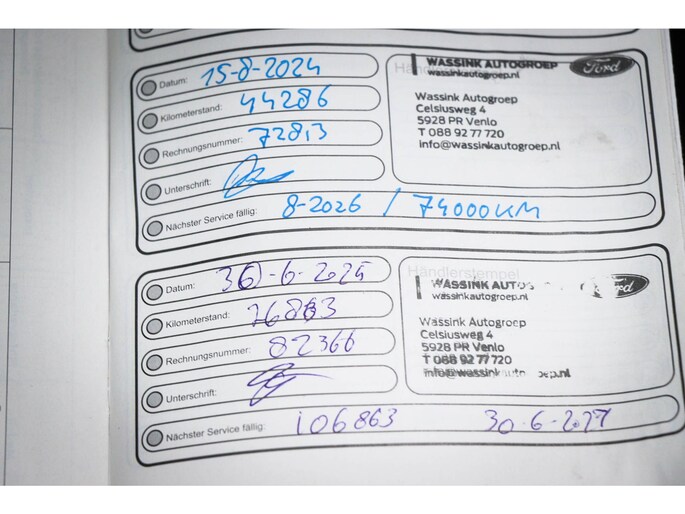 Datum: 15-8-2024
Kilometerstand: 44286
Rechnungsnummer: 72813
Unterschrift:
Nächster Service fällig: 8-2026 / 74000KM
WASSINK AUTOGROEP
wassinkautogroep.nl
Ford
Wassink Autogroep
Celsiusweg 4
5928 PR Venlo
T 088 92 77 720
info@wassinkautogroep.nl
Datum: 30-6-2025
Kilometerstand: 76863
Rechnungsnummer: 82366
Unterschrift:
Nächster Service fällig: 106863 30-6-2027
Händlerstempel
WASSINK AUTOG
wassinkautogroep.nl
Ford
Wassink Autogroep
Celsiusweg 4
5928 PR Venlo
T 088 92 77 720
info@wassinkautogroep.nl